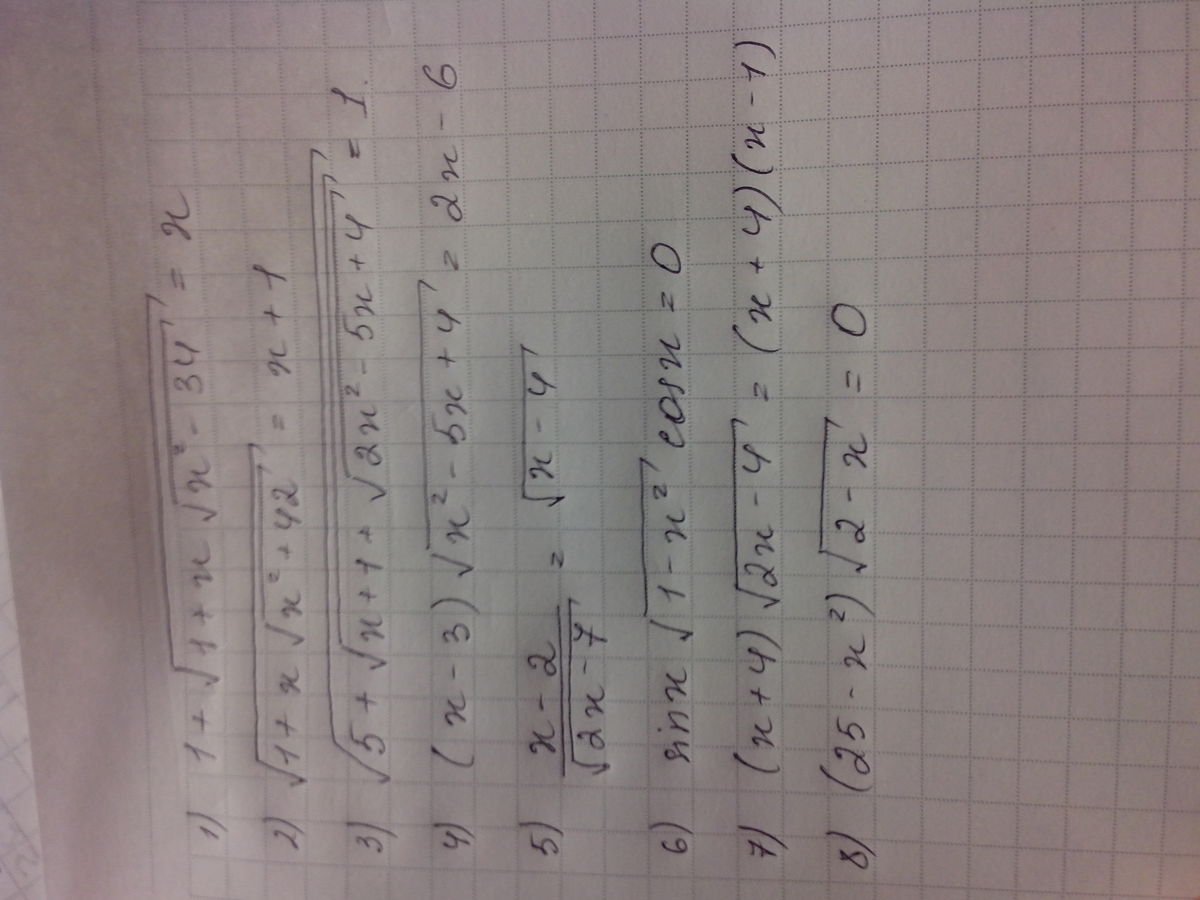 1) 1 + √(1 + x √(x² - 34)) = x
2) √(1 + x √(x² + 42)) = x + 1
3) √(5 + √(x + 1 + √(2x² - 5x + 4))) = 1.
4) (x - 3) √(x² - 5x + 4) = 2x - 6
5) (x - 2)/√(2x - 7) = √(x - 4)
6) sin x √(1 - x²) cos x = 0
7) (x + 4) √(2x - 4) = (x + 4)(x - 1)
8) (25 - x²) √(2 - x) = 0